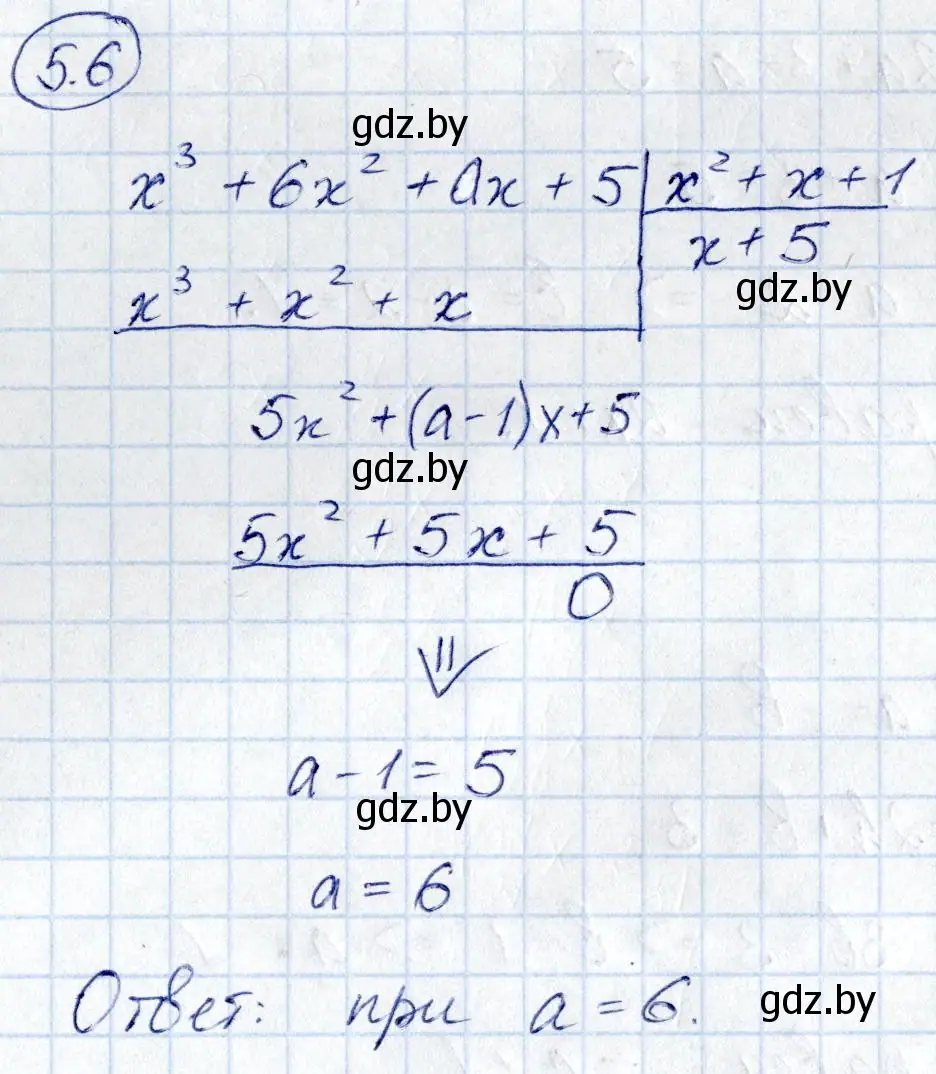 5.6
gdz.by
x³ + 6x² + ax + 5 | x² + x + 1
x + 5
gdz.by
x³ + x² + x
5x² + (a - 1)x + 5
gdz.by
5x² + 5x + 5
0
⇓
a - 1 = 5
gdz.by
a = 6
Ответ: при a = 6.
gdz.by